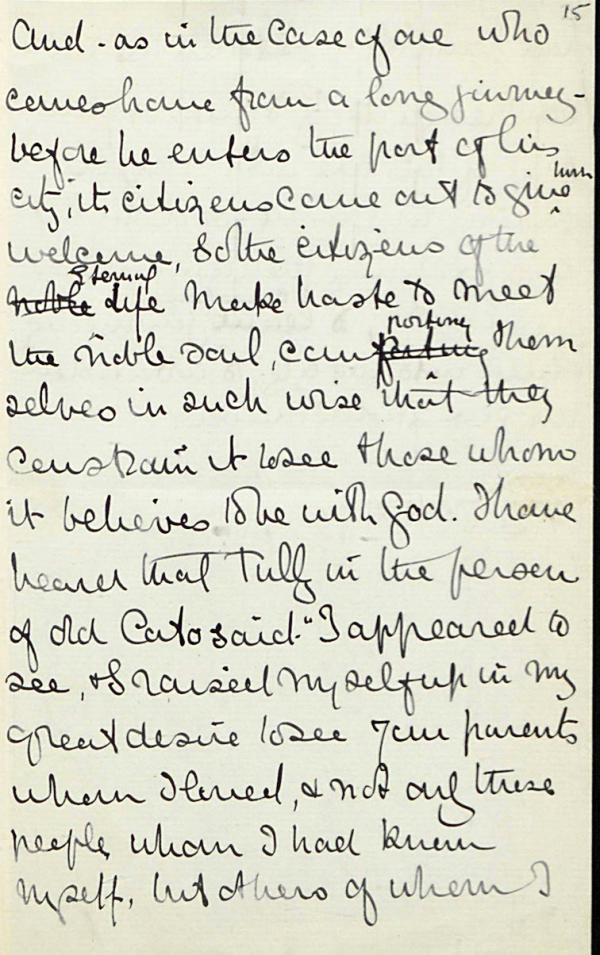 15
And - as in the case of one who
comes home from a long journey -
before he enters the port of his
city, its citizens come out to give him
welcome, so the citizens of the
noble Eternal Life make haste to meet
the noble soul, comforting porting them
selves in such wise that they
constrain it to see those whom
it believes to be with God. I have
heard that Tully in the person
of old Cato said - "I appeared to
see, & I raised myself up in my
great desire to see your parents
whom I loved, & not only these
people whom I had known
myself, but others of whom I